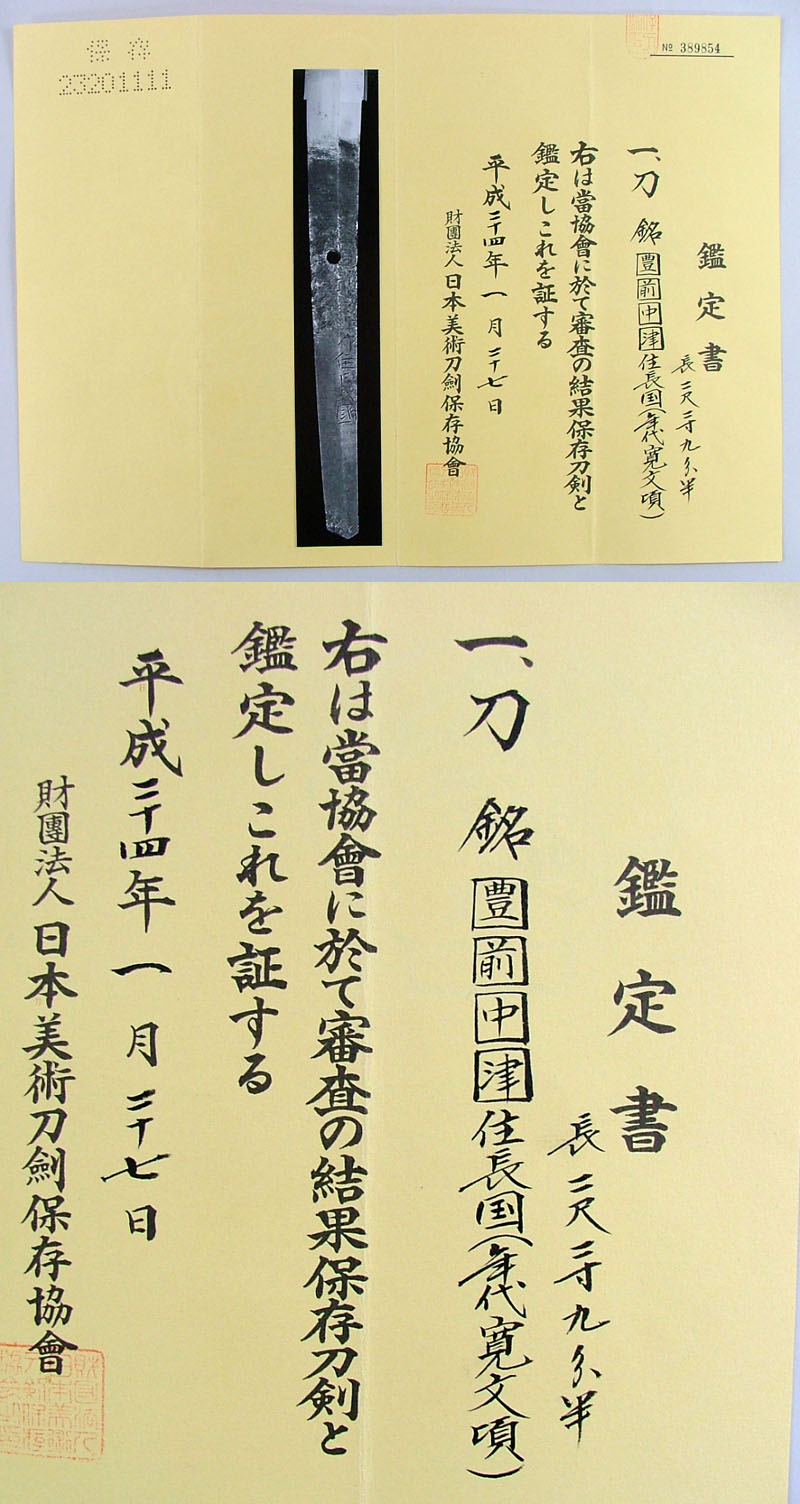 保存
23201111
№ 389854
鑑定書
長二尺三寸九分半
一、刀 銘 豊前中津住長国(年代寛文頃)
右は當協會に於て審査の結果保存刀剣と
鑑定しこれを証する
平成二十四年一月二十七日
財團法人日本美術刀劍保存協會
鑑定書
長二尺三寸九分半
一、刀 銘 豊前中津住長国(年代寛文頃)
右は當協會に於て審査の結果保存刀剣と
鑑定しこれを証する
平成二十四年一月二十七日
財團法人日本美術刀劍保存協會